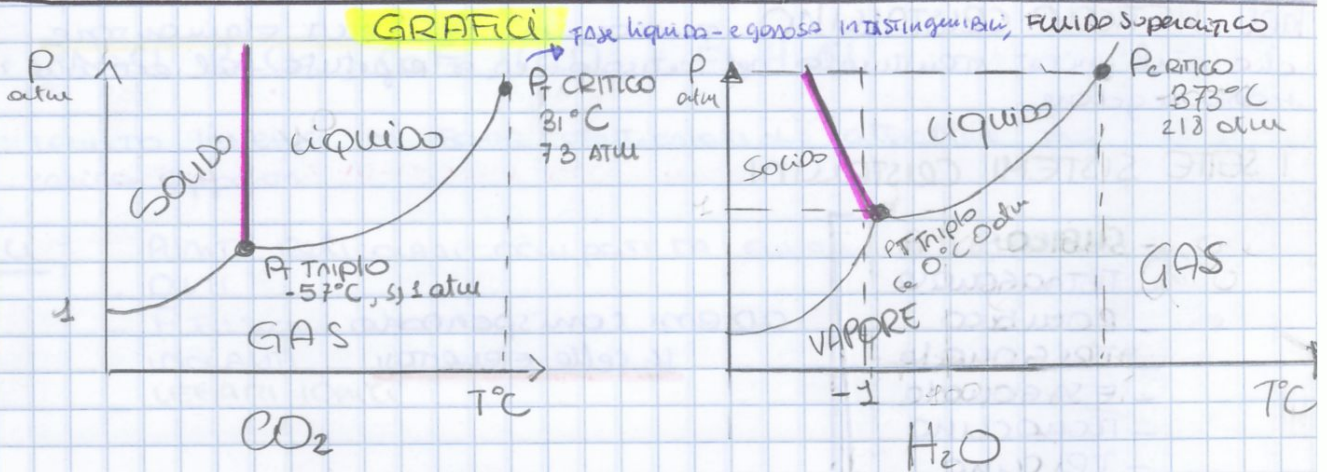 GRAFICI
FASE liquida - e gassosa indistinguibili, FLUIDO Supercritico
P
atm
SOLIDO
LIQUIDO
Pt CRITICO
31°C
73 ATM
Pt Triplo
-57°C, 5,1 atm
1
GAS
T°C
CO₂
P
atm
SOLIDO
LIQUIDO
Pc RITICO
-373°C
218 atm
1
PT Triplo
0°C 0 atm
GAS
VAPORE
-1
T°C
H₂O
SETTE SISTEMI
CUBICO